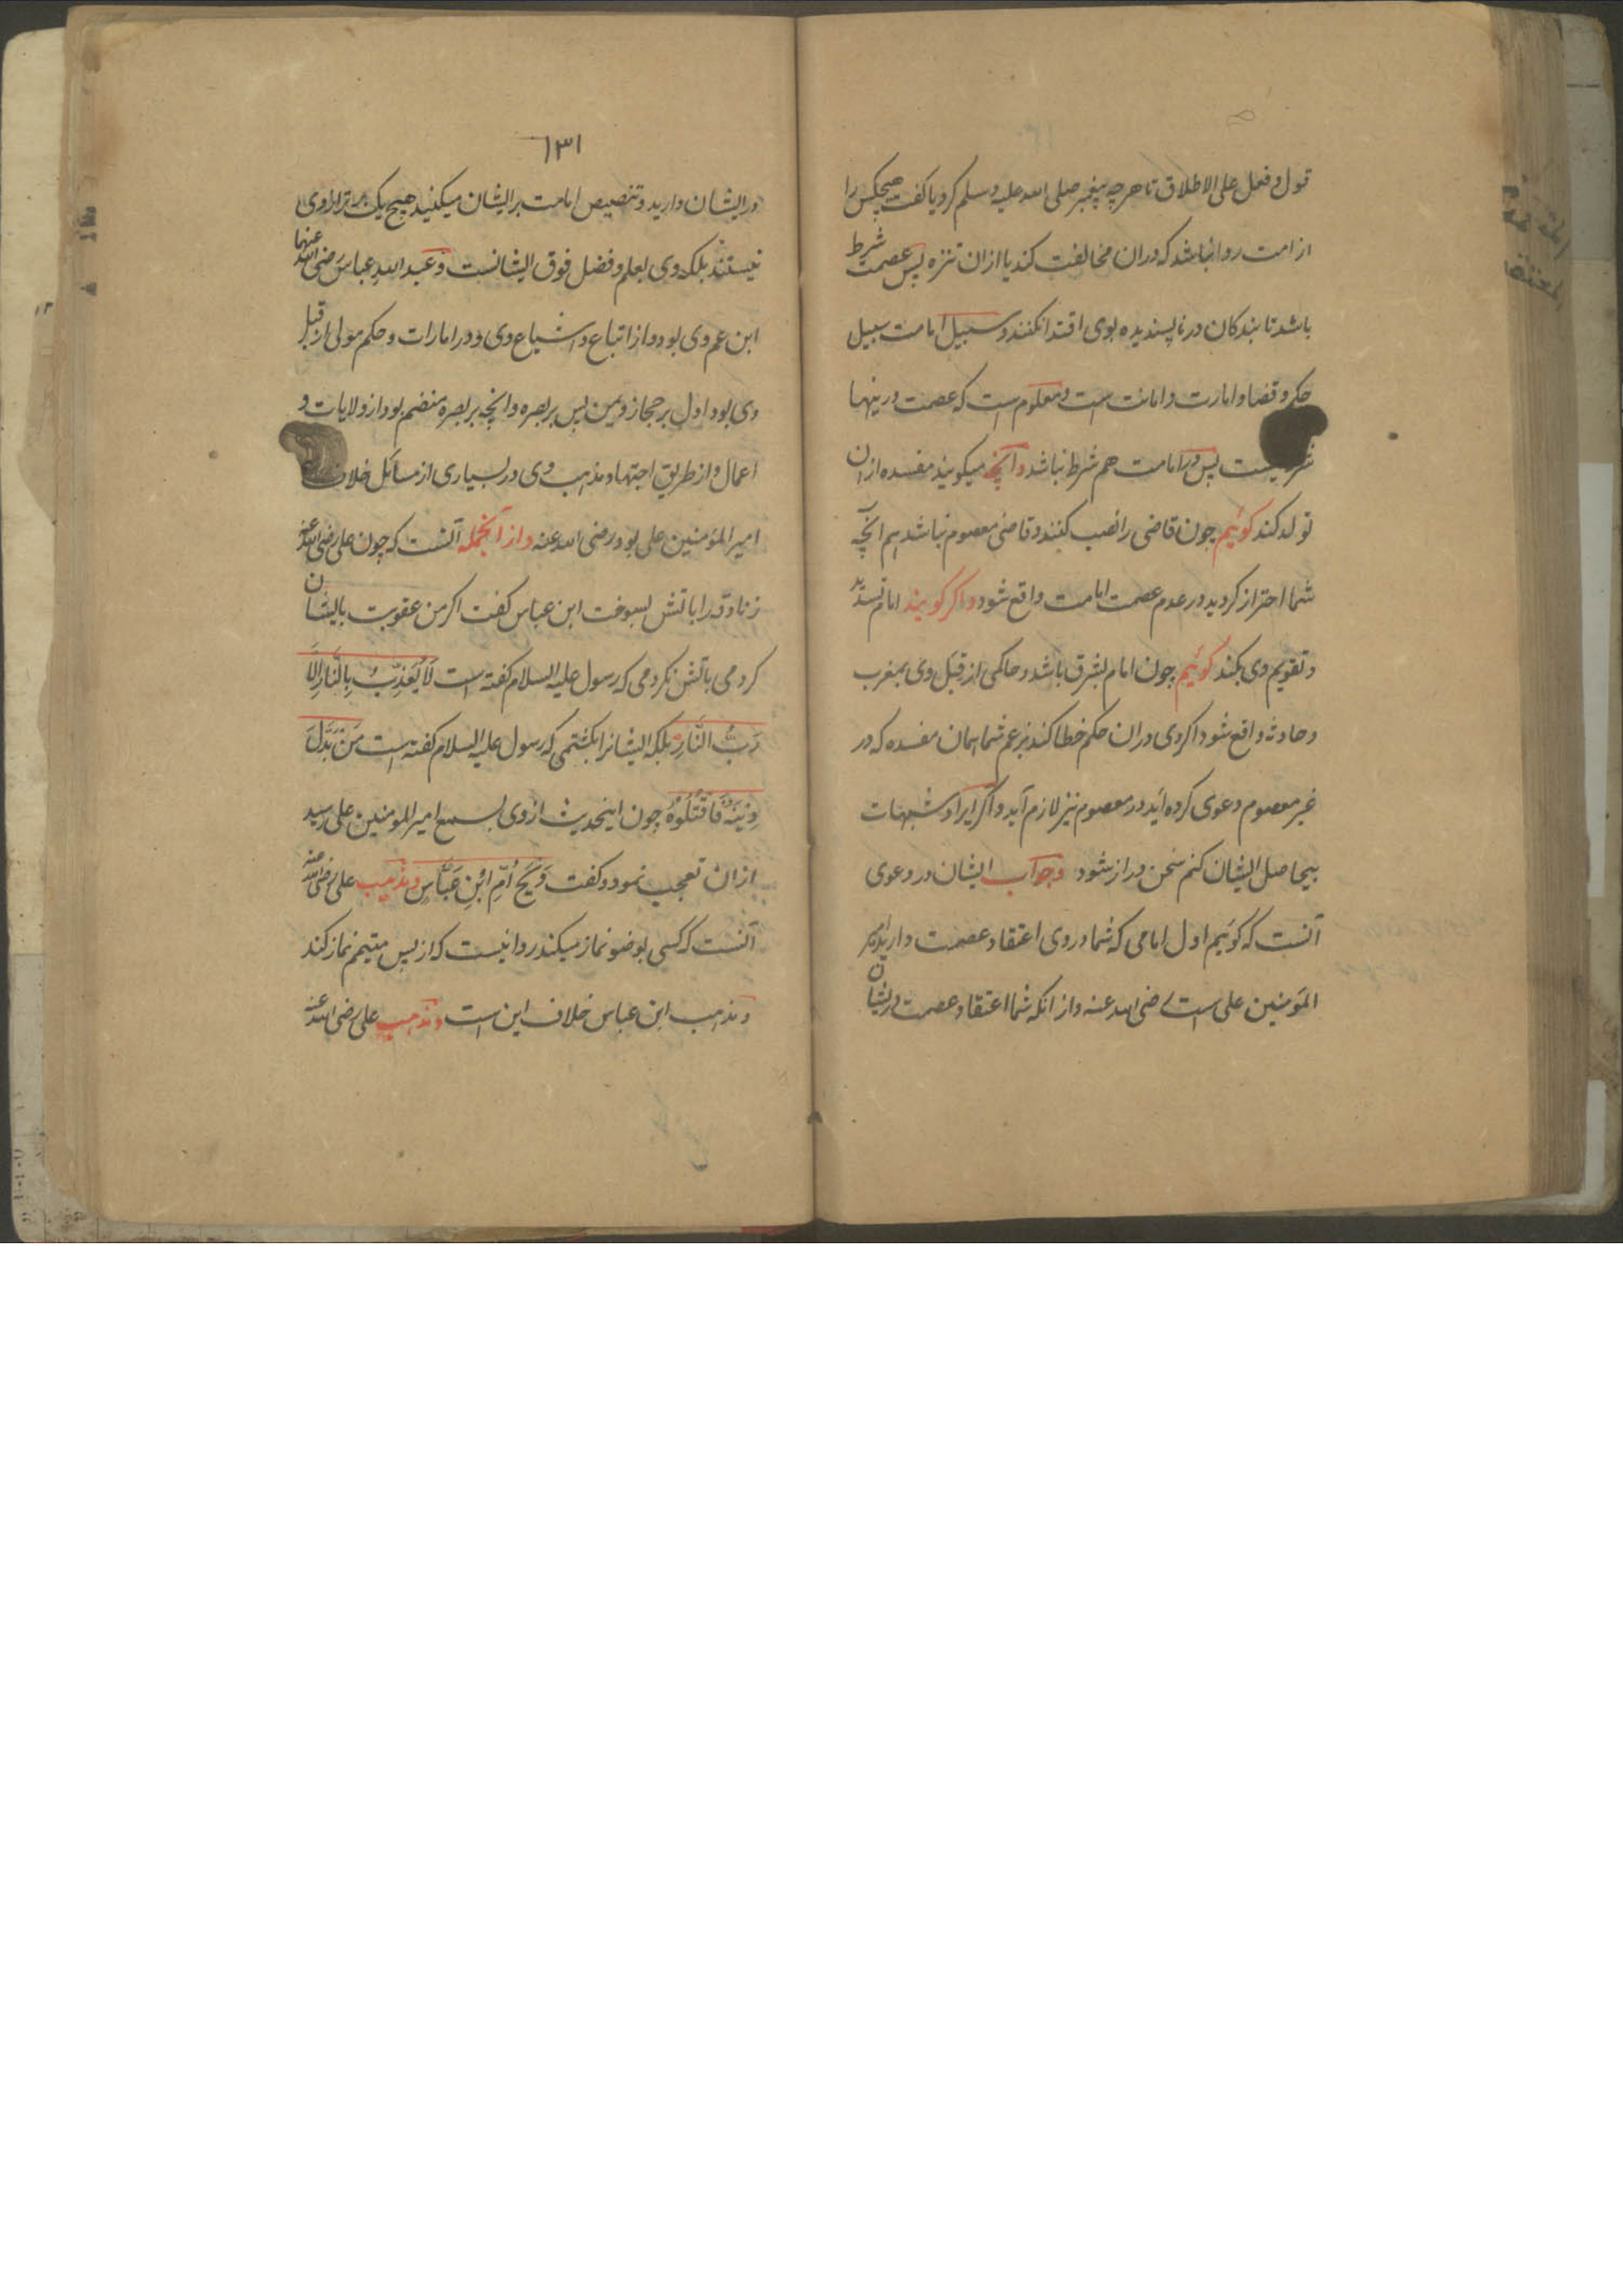 قول و فعل علی الاطلاق تا هر چه پیغمبر صلی الله علیه وسلم کرد یا گفت هیچکس را
از امت روا نباشد که دران مخالفت کند یا ازان تنزه پس عصمت شرط
باشد تا بندکان در ناپسندیده بوی اقتدا نکنند و سبیل امامت سبیل
حکم و قضا و امارت و امانت است و معلوم است که عصمت درینها
شرط نیست پس در امامت هم شرط نباشد و آنچه میکویند مفسده ازان
تولد کند کوئیم چون قاضی را نصب کنند و قاضی معصوم نباشد هم آنچه
شما احتراز کردید در عدم عصمت امامت واقع شود و اکر کویند امام تسدید
و تقویم وی بکند کوئیم چون امام بشرق باشد و حاکمی از قبل وی بمغرب
و حادثه واقع شود اکر وی دران حکم خطا کند بزعم شما همان مفسده که در
غیر معصوم دعوی کرده اید در معصوم نیز لازم آید و اکر ایراد شبهات
بیحاصل ایشان کنم سخن دراز شود و جواب ایشان در دعوی
آنست که کوئیم اول امامی که شما در وی اعتقاد عصمت دارید امیر
المؤمنین علی است رضی الله عنه و از انکه شما اعتقاد عصمت در ایشان
۱۳۱
در ایشان دارید و تنصیص امامت بر ایشان میکنید هیچ یک برتر از وی
نیستند بلکه وی بعلم و فضل فوق ایشانست و عبد الله عباس رضی الله عنهما
ابن عم وی بود و از اتباع و اشیاع وی و در امارات و حکم مولی از قبل
وی بود اول بر حجاز و یمن پس بر بصره و انچه بر بصره منضم بود از ولایات و
اعمال و از طریق اجتهاد مذهب وی در بسیاری از مسائل خلاف
امیر المؤمنین علی بود رضی الله عنه و از آنجمله آنست که چون علی رضی الله عنه
زنادقه را باتش بسوخت ابن عباس کفت اکر من عقوبت بایشان
کردمی باتش نکردمی که رسول علیه السلام کفته است لَا یُعَذِّبُ بِالنَّارِ اِلَّا
رَبُّ النَّارِ بلکه ایشانرا بکشتمی که رسول علیه السلام کفته است مَنْ بَدَّلَ
دِیْنَهٗ فَاقْتُلُوْهُ چون اینحدیث از وی بسمع امیر المومنین علی رسید
ازان تعجب نمود و کفت وَیْحَ اُمِّ ابْنِ عَبَّاسٍ و مذهب علی رضی الله عنه
آنست که کسی بوضو نماز میکند روا نیست که از پس متیمم نماز کند
و مذهب ابن عباس خلاف این است و مذهب علی رضی الله عنه